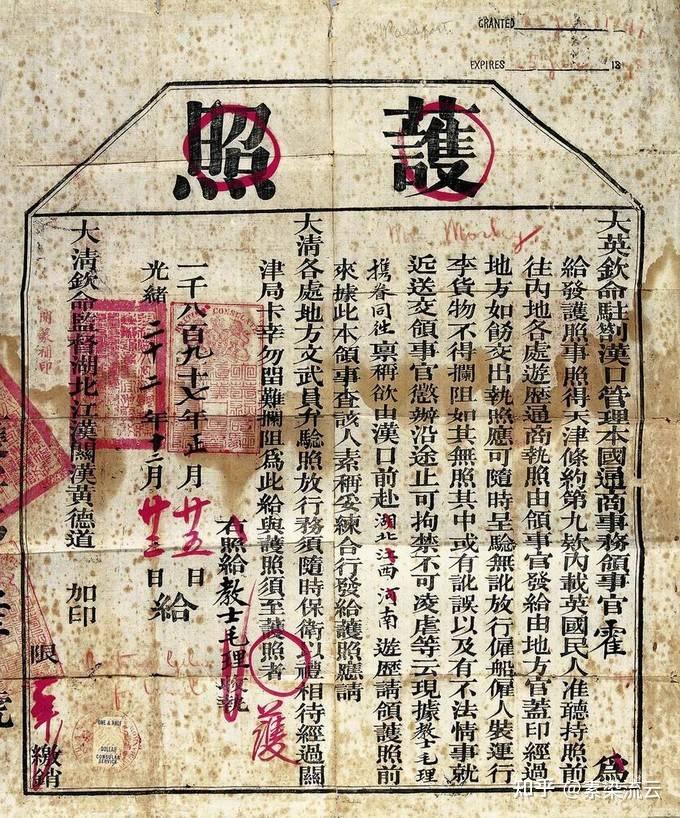 GRANTED
EXPIRES 18
Mr Morley
護照
大英欽命駐劄漢口管理本國通商事務領事官霍 爲
給發護照事照得天津條約第九欵內載英國民人准聽持照前
往內地各處遊歷通商執照由領事官發給由地方官蓋印經過
地方如飭交出執照應可隨時呈驗無訛放行僱船僱人裝運行
李貨物不得攔阻如其無照其中或有訛誤以及有不法情事就
近送交領事官懲辦沿途止可拘禁不可凌虐等云現據教士毛理
攜眷同往稟稱欲由漢口前赴湖北江西河南遊歷請領護照前
來據此本領事查該人素稱妥練合行發給護照應請
大清各處地方文武員弁驗照放行務須隨時保衛以禮相待經過關
津局卡幸勿留難攔阻爲此給與護照須至護照者
右照給教士毛理收執
護
一千八百九十七年正月廿五日
光緒二十二年十二月廿三日
給
大清欽命監督湖北江漢關漢黃德道 加印
限一年繳銷
ONE & HALF
DOLLAR
CONSULAR
SERVICE
知乎 @素柒流云